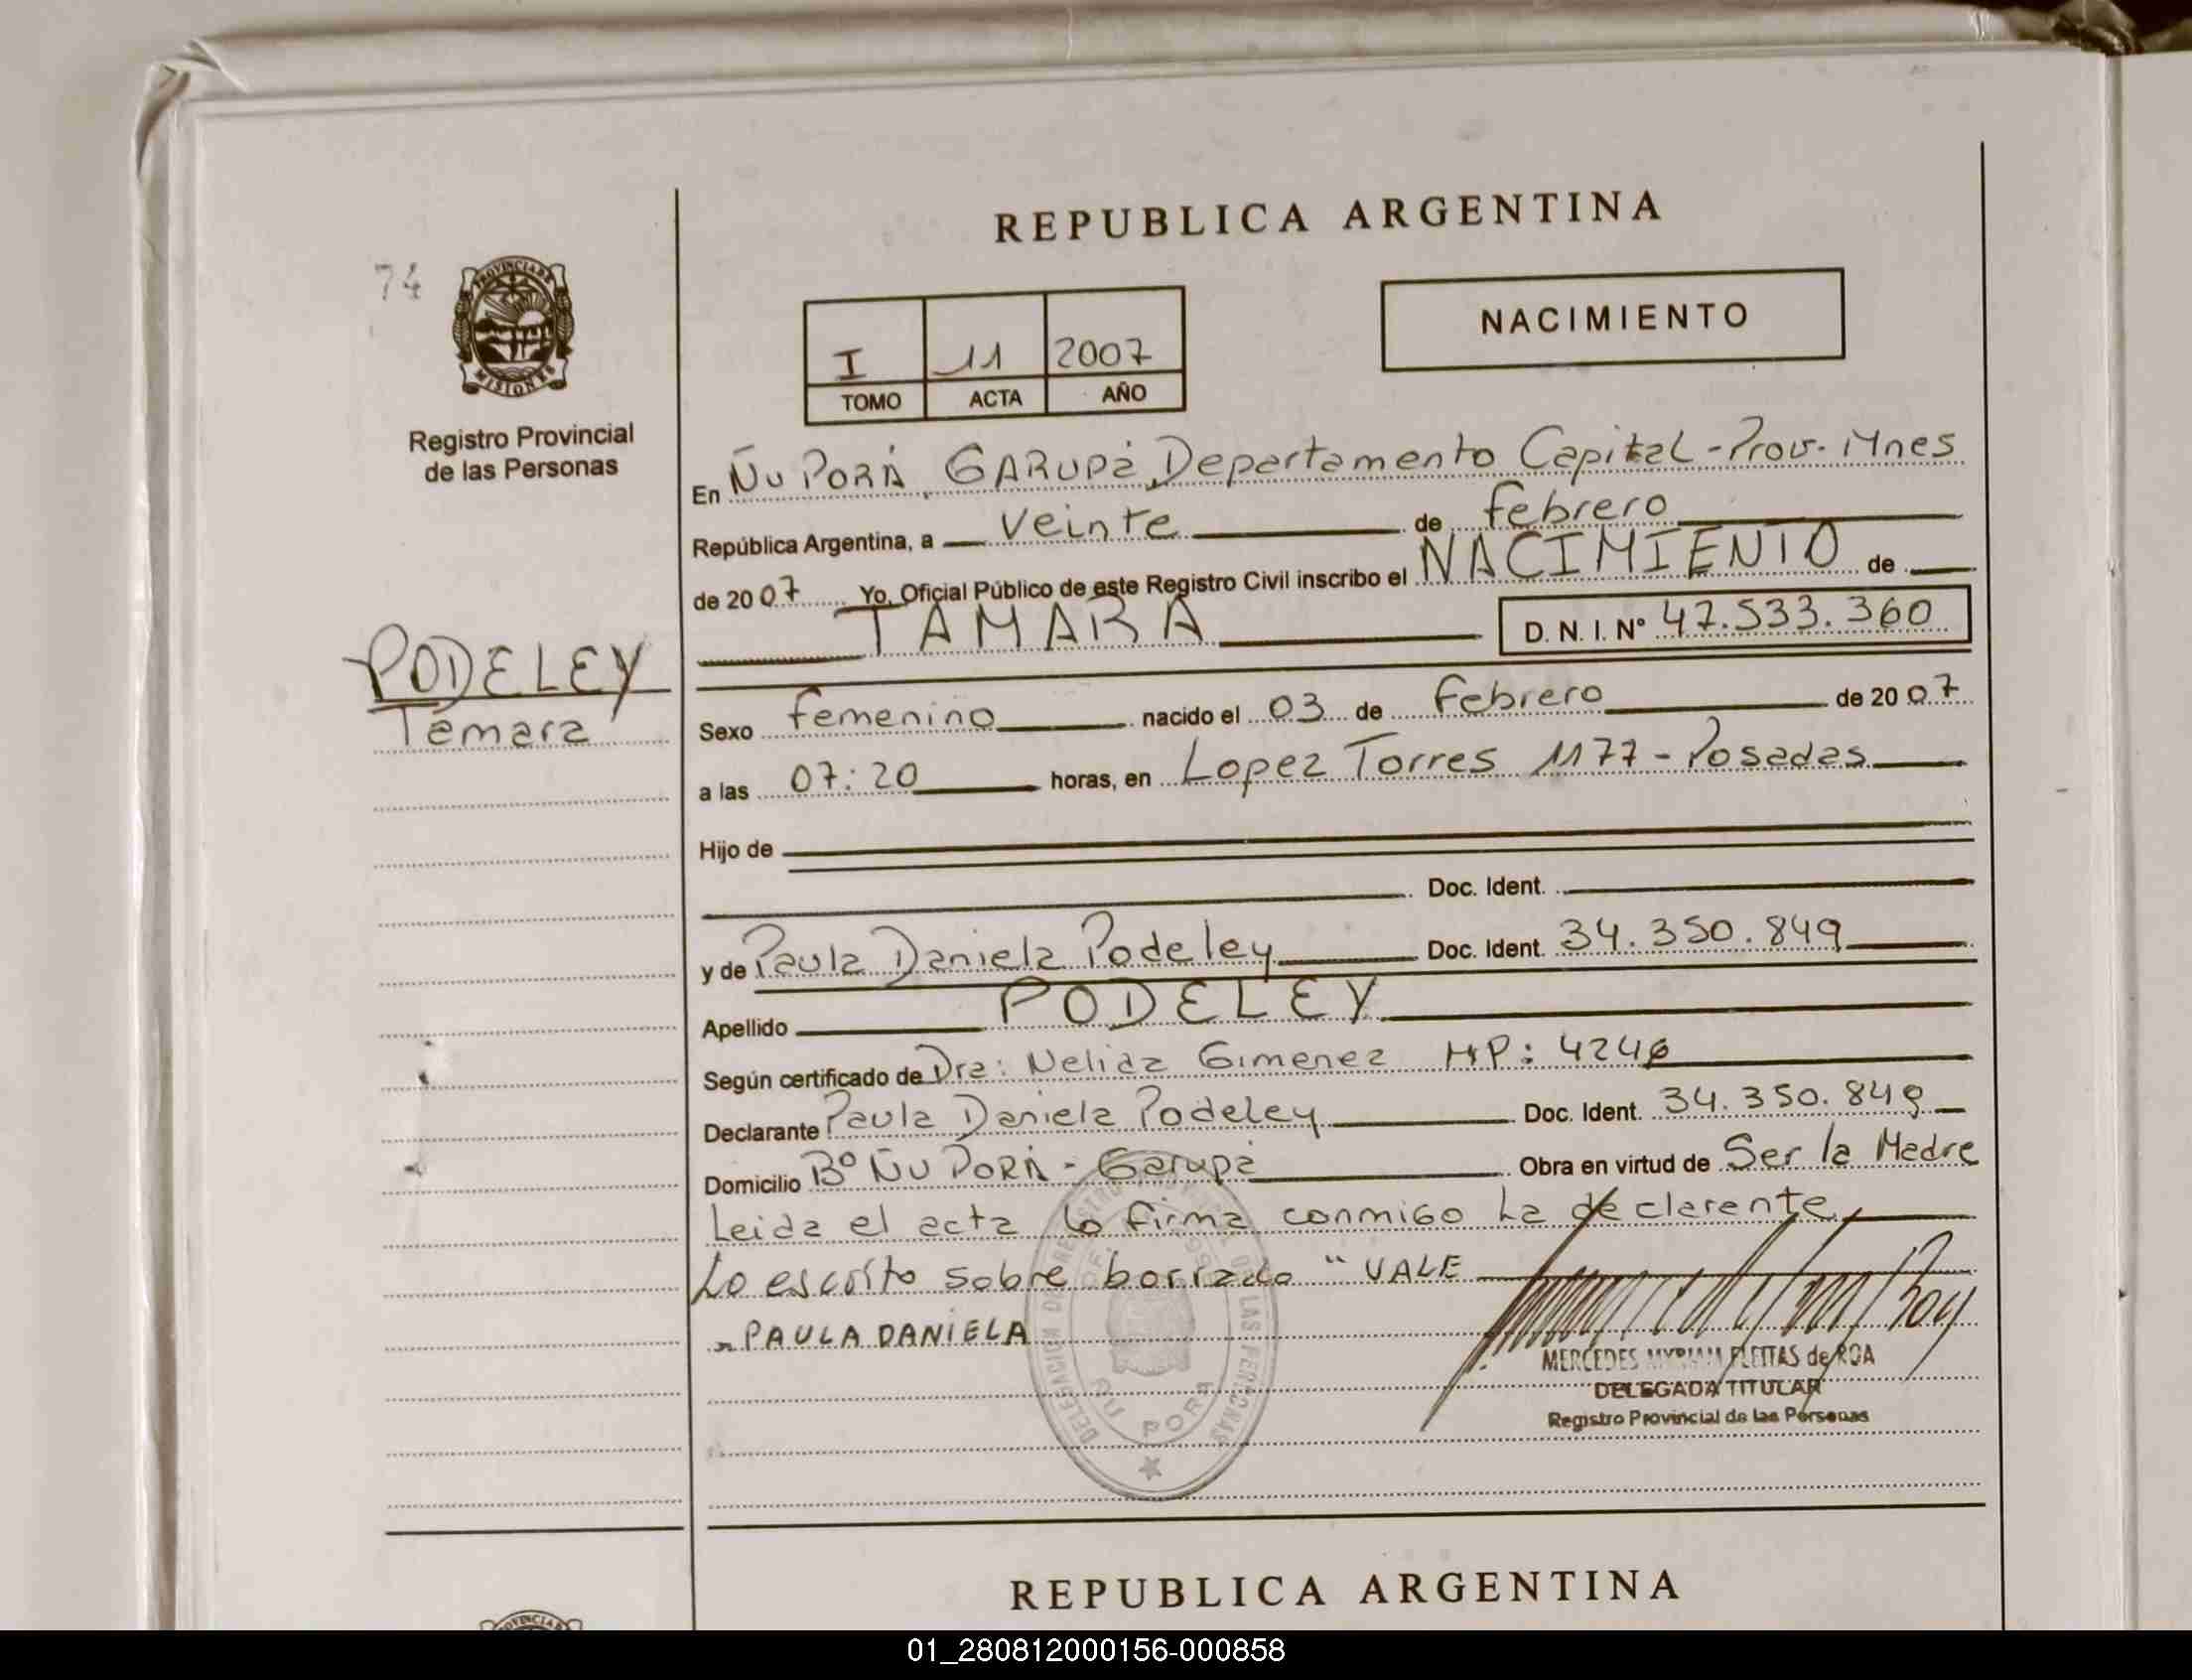 REPUBLICA ARGENTINA
74
PROVINCIA DE
MISIONES
NACIMIENTO
I 11 2007
TOMO ACTA AÑO
Registro Provincial
de las Personas
En Ñu PORÁ, GARUPÁ, Departamento Capital - Prov. Mnes
República Argentina, a veinte de febrero
de 2007 Yo, Oficial Público de este Registro Civil inscribo el NACIMIENTO de
TAMARA D. N. I. Nº 47.533.360
PODELEY
Tamara
Sexo femenino nacido el 03 de febrero de 2007
a las 07:20 horas, en Lopez Torres 1177 - Posadas
Hijo de
Doc. Ident.
y de Paula Daniela Podeley Doc. Ident. 34.350.849
Apellido PODELEY
Según certificado de Dra: Nelida Gimenez MP: 4246
Declarante Paula Daniela Podeley Doc. Ident. 34.350.849
Domicilio Bº Ñu PORÁ - Garupá Obra en virtud de Ser la Madre
Leida el acta lo firma conmigo La declarante
Lo escrito sobre borrado " VALE
" PAULA DANIELA
DELEGACION DE REGISTRO PROVINCIAL DE LAS PERSONAS
ÑU PORA
MERCEDES MYRIAM FLEITAS de ROA
DELEGADA TITULAR
Registro Provincial de las Personas
REPUBLICA ARGENTINA
01_280812000156-000858